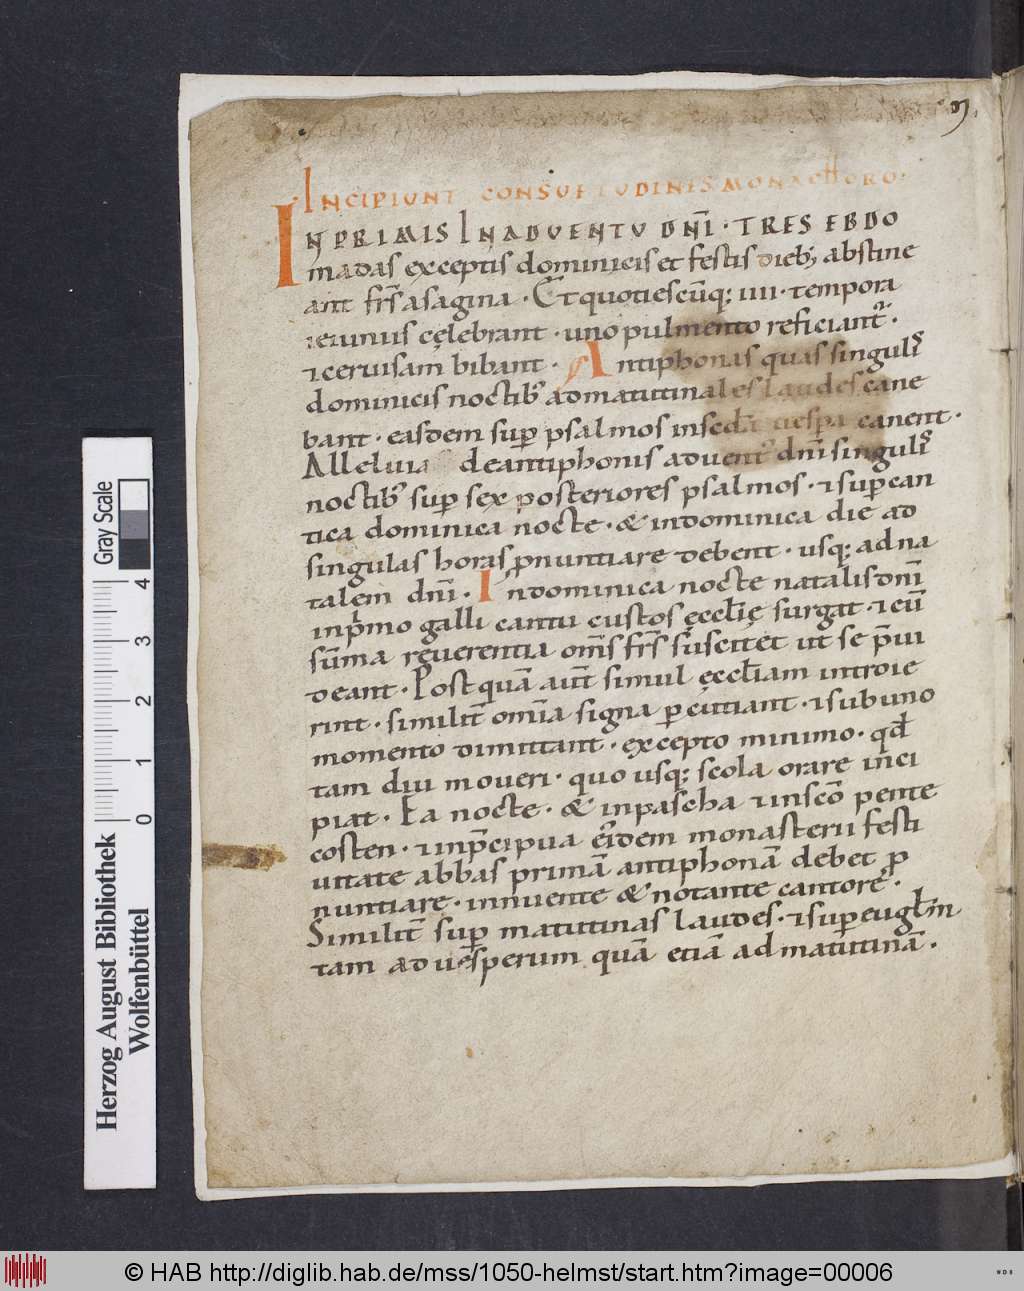 INCIPIUNT CONSUETUDINES MONACHORO.
INPRIMIS INADUENTU DNĪ · TRES EBDO
madas exceptis dominicis et festis dieb; abstine
ant frs̄ asagina · Et quotiescūq; iiii · tempora
ieiuniis cęlebrant · uno pulmento reficiant᷑ ·
⁊ ceruisam bibant · Antiphonas quas singulꝭ
dominicis noctib᷒ admatutinales laudes cane
bant · easdem suꝑ psalmos insecd̄a uespa canent ·
Alleluia deantiphonis aduent᷒ dnī singulꝭ
noctib᷒ suꝑ sex posteriores psalmos · ⁊ suꝑ can
tica dominica nocte · & indominica die ad
singulas horas ꝓnuntiare debent · usq; ad na
talem dnī · In dominica nocte natalis dnī
inpͥmo galli cantu custos ęcclīę surgat · ⁊ cū
sūma reuerentia om̄s frs̄ suscitet ut se p̄ui
deant · Postquā aut̄ simul ęccl̄iam introie
rint · similit̄ om̄ia signa ꝑcutiant · ⁊ sub uno
momento dimittant · excepto minimo · qd̄
tam diu moueri · quo usq; scola orare inci
piat · Ea nocte · & inpascha ⁊ inscō pente
costen · ⁊ inp̄cipua eiͥdem monasterii festi
uitate abbas primā antiphonā debet ꝓ
nuntiare · innuente & notante cantore ·
Similit̄ suꝑ matutinas laudes · ⁊ suꝑ eugl̄m
tam ad uesperum quā etiā ad matutinā ·
Gray Scale
0 1 2 3 4
Herzog August Bibliothek
Wolfenbüttel
© HAB http://diglib.hab.de/mss/1050-helmst/start.htm?image=00006